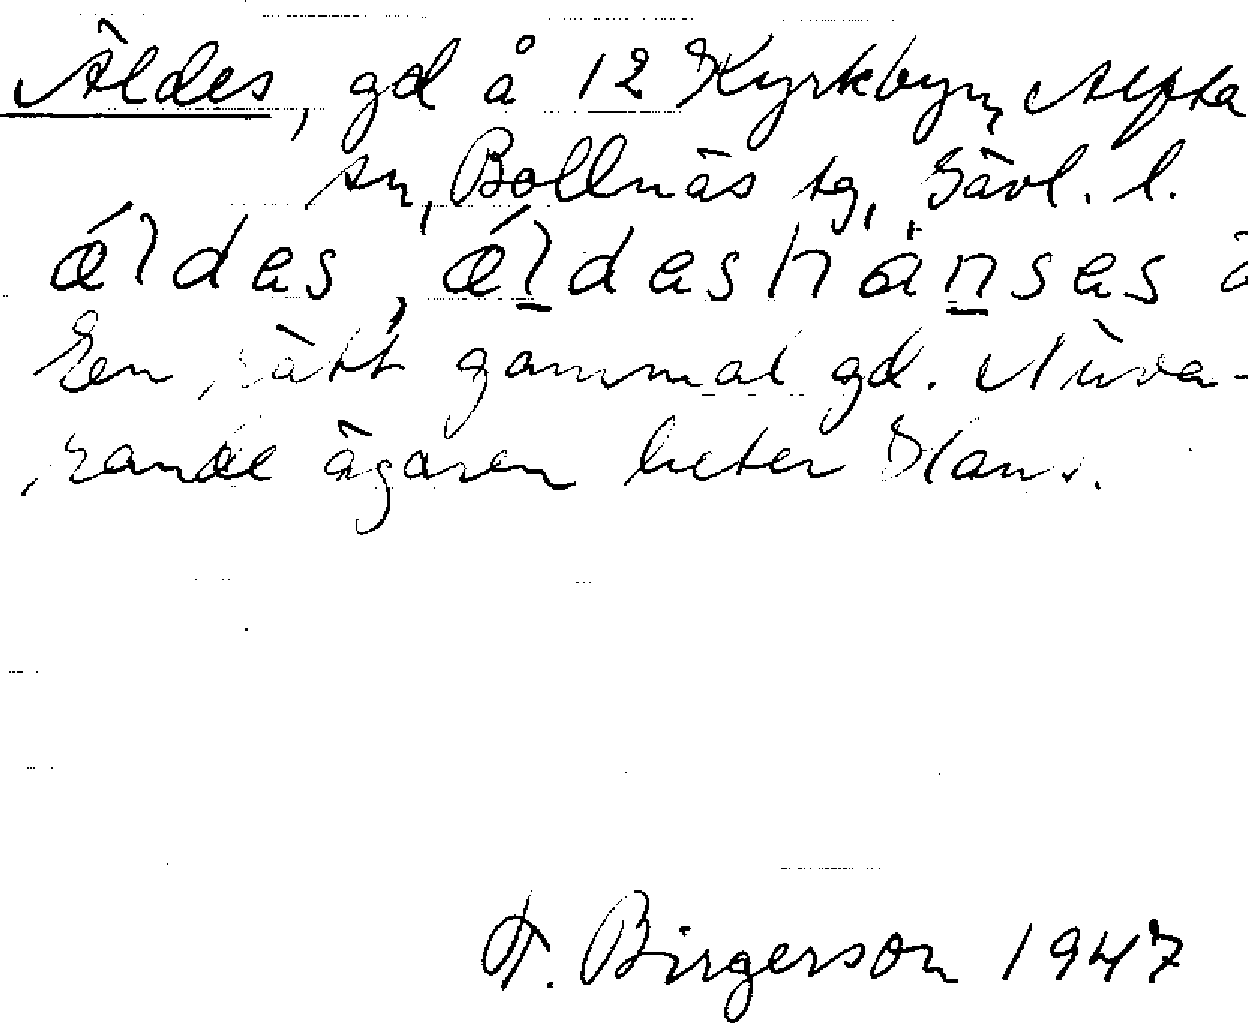 Äldes, gd å 12 Kyrkbyn, Alfta
sn, Bollnäs tg, Gävl. l.
ǽldes, ǽldeshánses
En rätt gammal gd. Nuva-
rande ägaren heter Hans.
T. Birgerson 1947